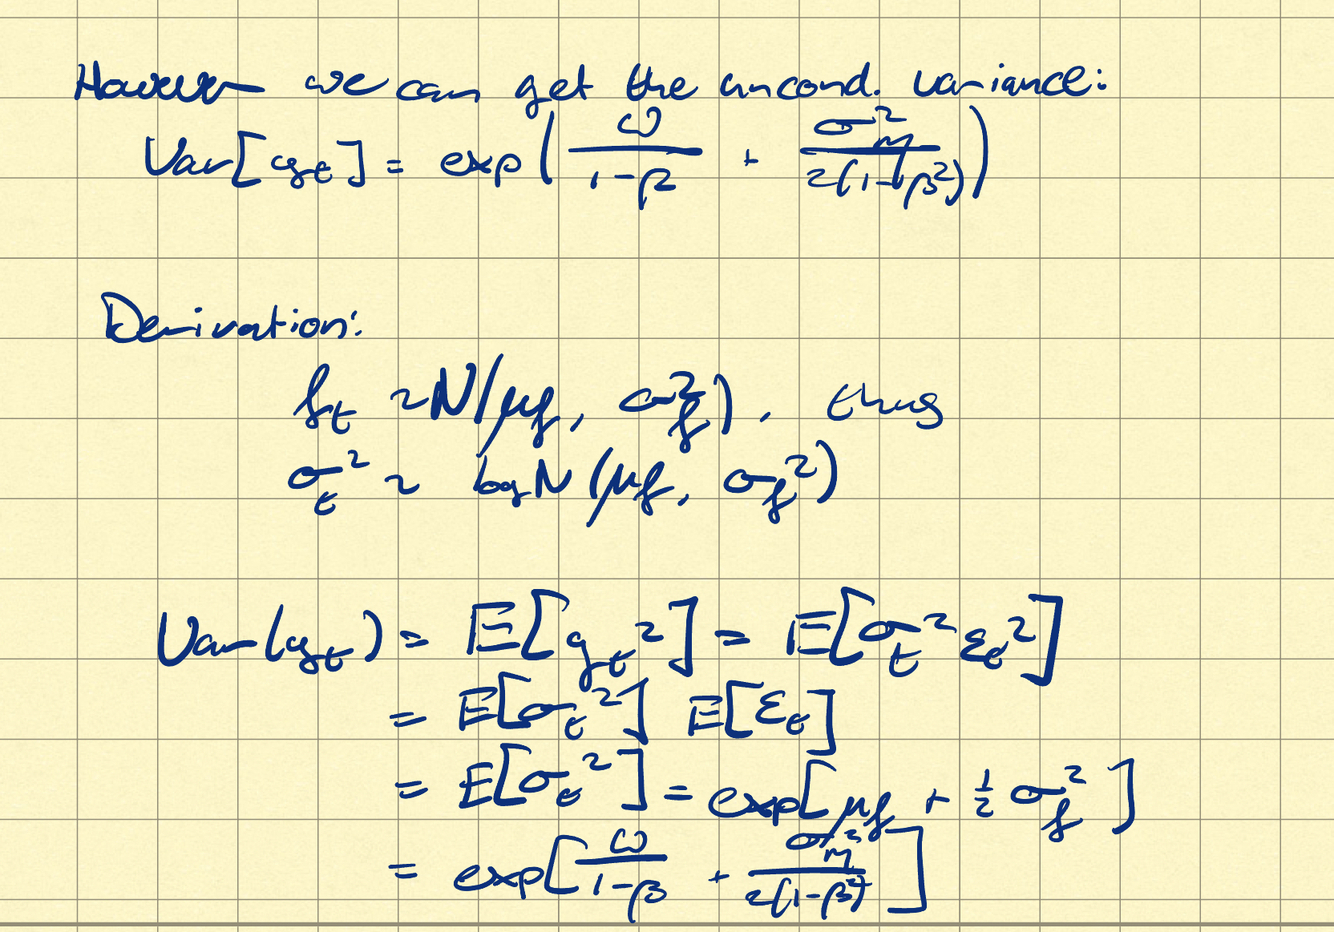 However we can get the uncond. variance:
Var[y_t] = exp( ω / (1-β) + σ_η^2 / (2(1-β^2)) )
Derivation:
f_t ~ N(μ_f, σ_f^2), thus
σ_t^2 ~ logN(μ_f, σ_f^2)
Var(y_t) = E[y_t^2] = E[σ_t^2 ε_t^2]
= E[σ_t^2] E[ε_t]
= E[σ_t^2] = exp[μ_f + 1/2 σ_f^2]
= exp[ ω / (1-β) + σ_η^2 / (2(1-β^2)) ]